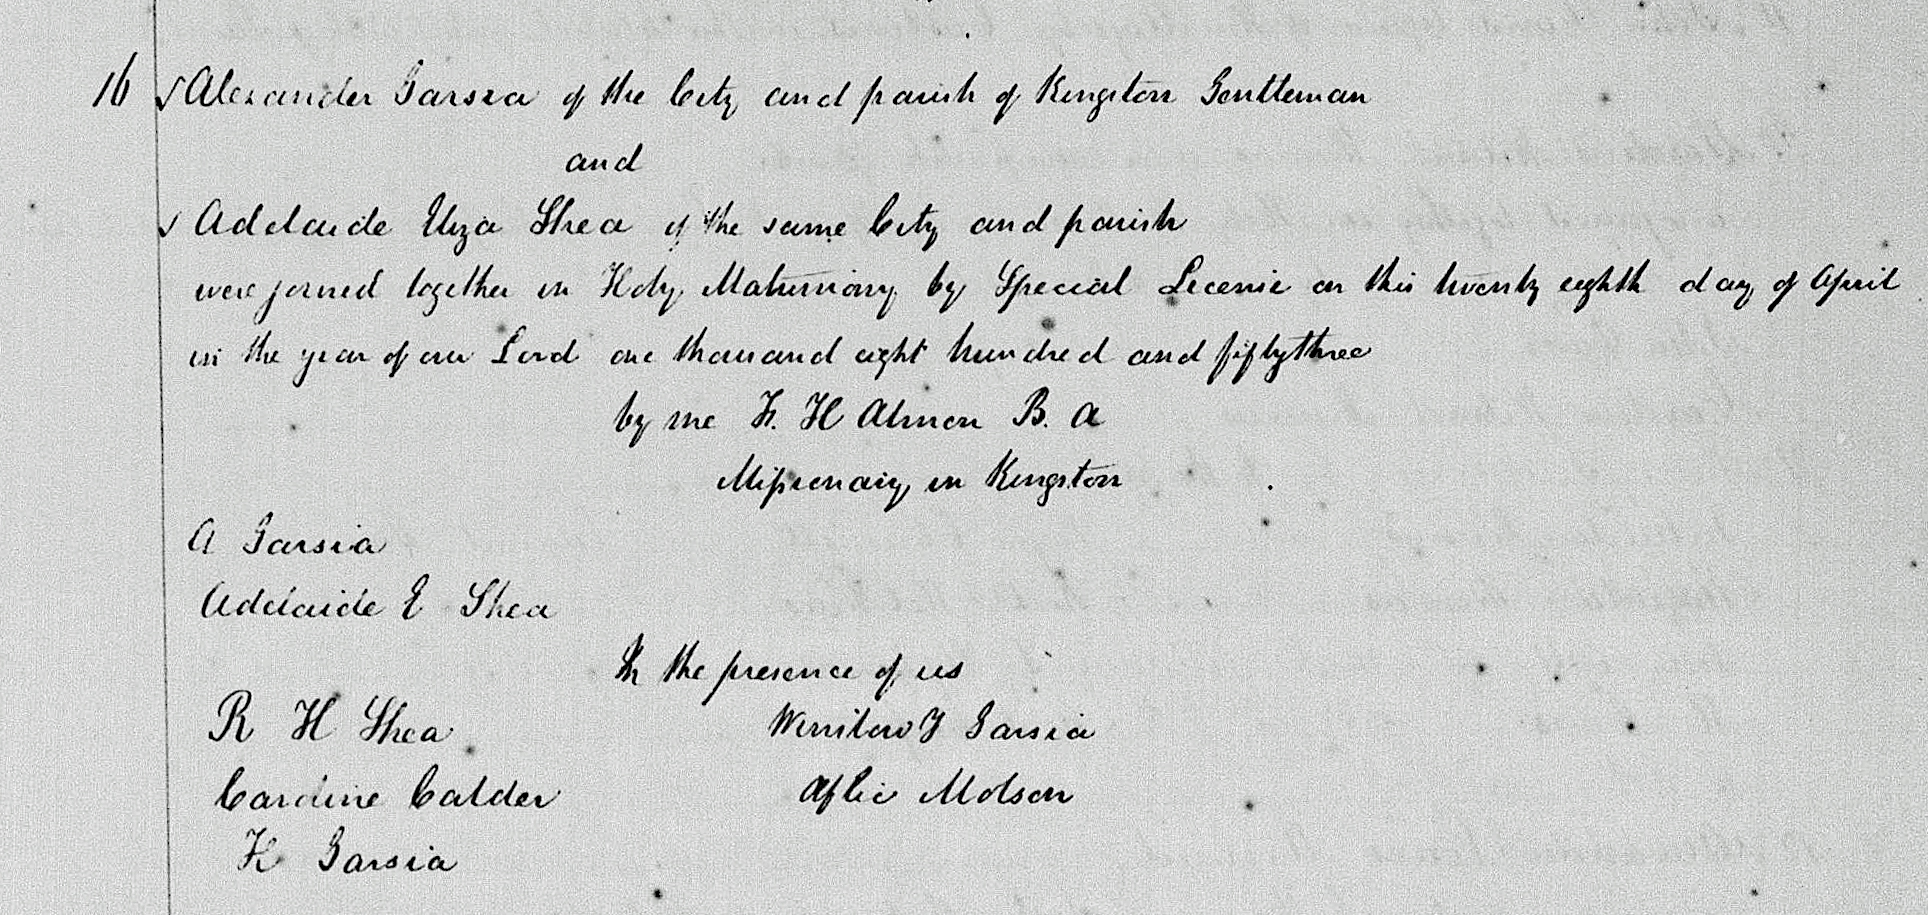 16 Alexander Garsia of the City and parish of Kingston Gentleman
and
Adelaide Eliza Shea of the same City and parish
were joined together in Holy Matrimony by Special Licence on this twenty eighth day of April
in the year of our Lord one thousand eight hundred and fifty three
by me F. H Almon B. A
Missionary in Kingston
A Garsia
Adelaide E Shea
In the presence of us
R H Shea
Garsia
Caroline Calder
Molson
H Garsia